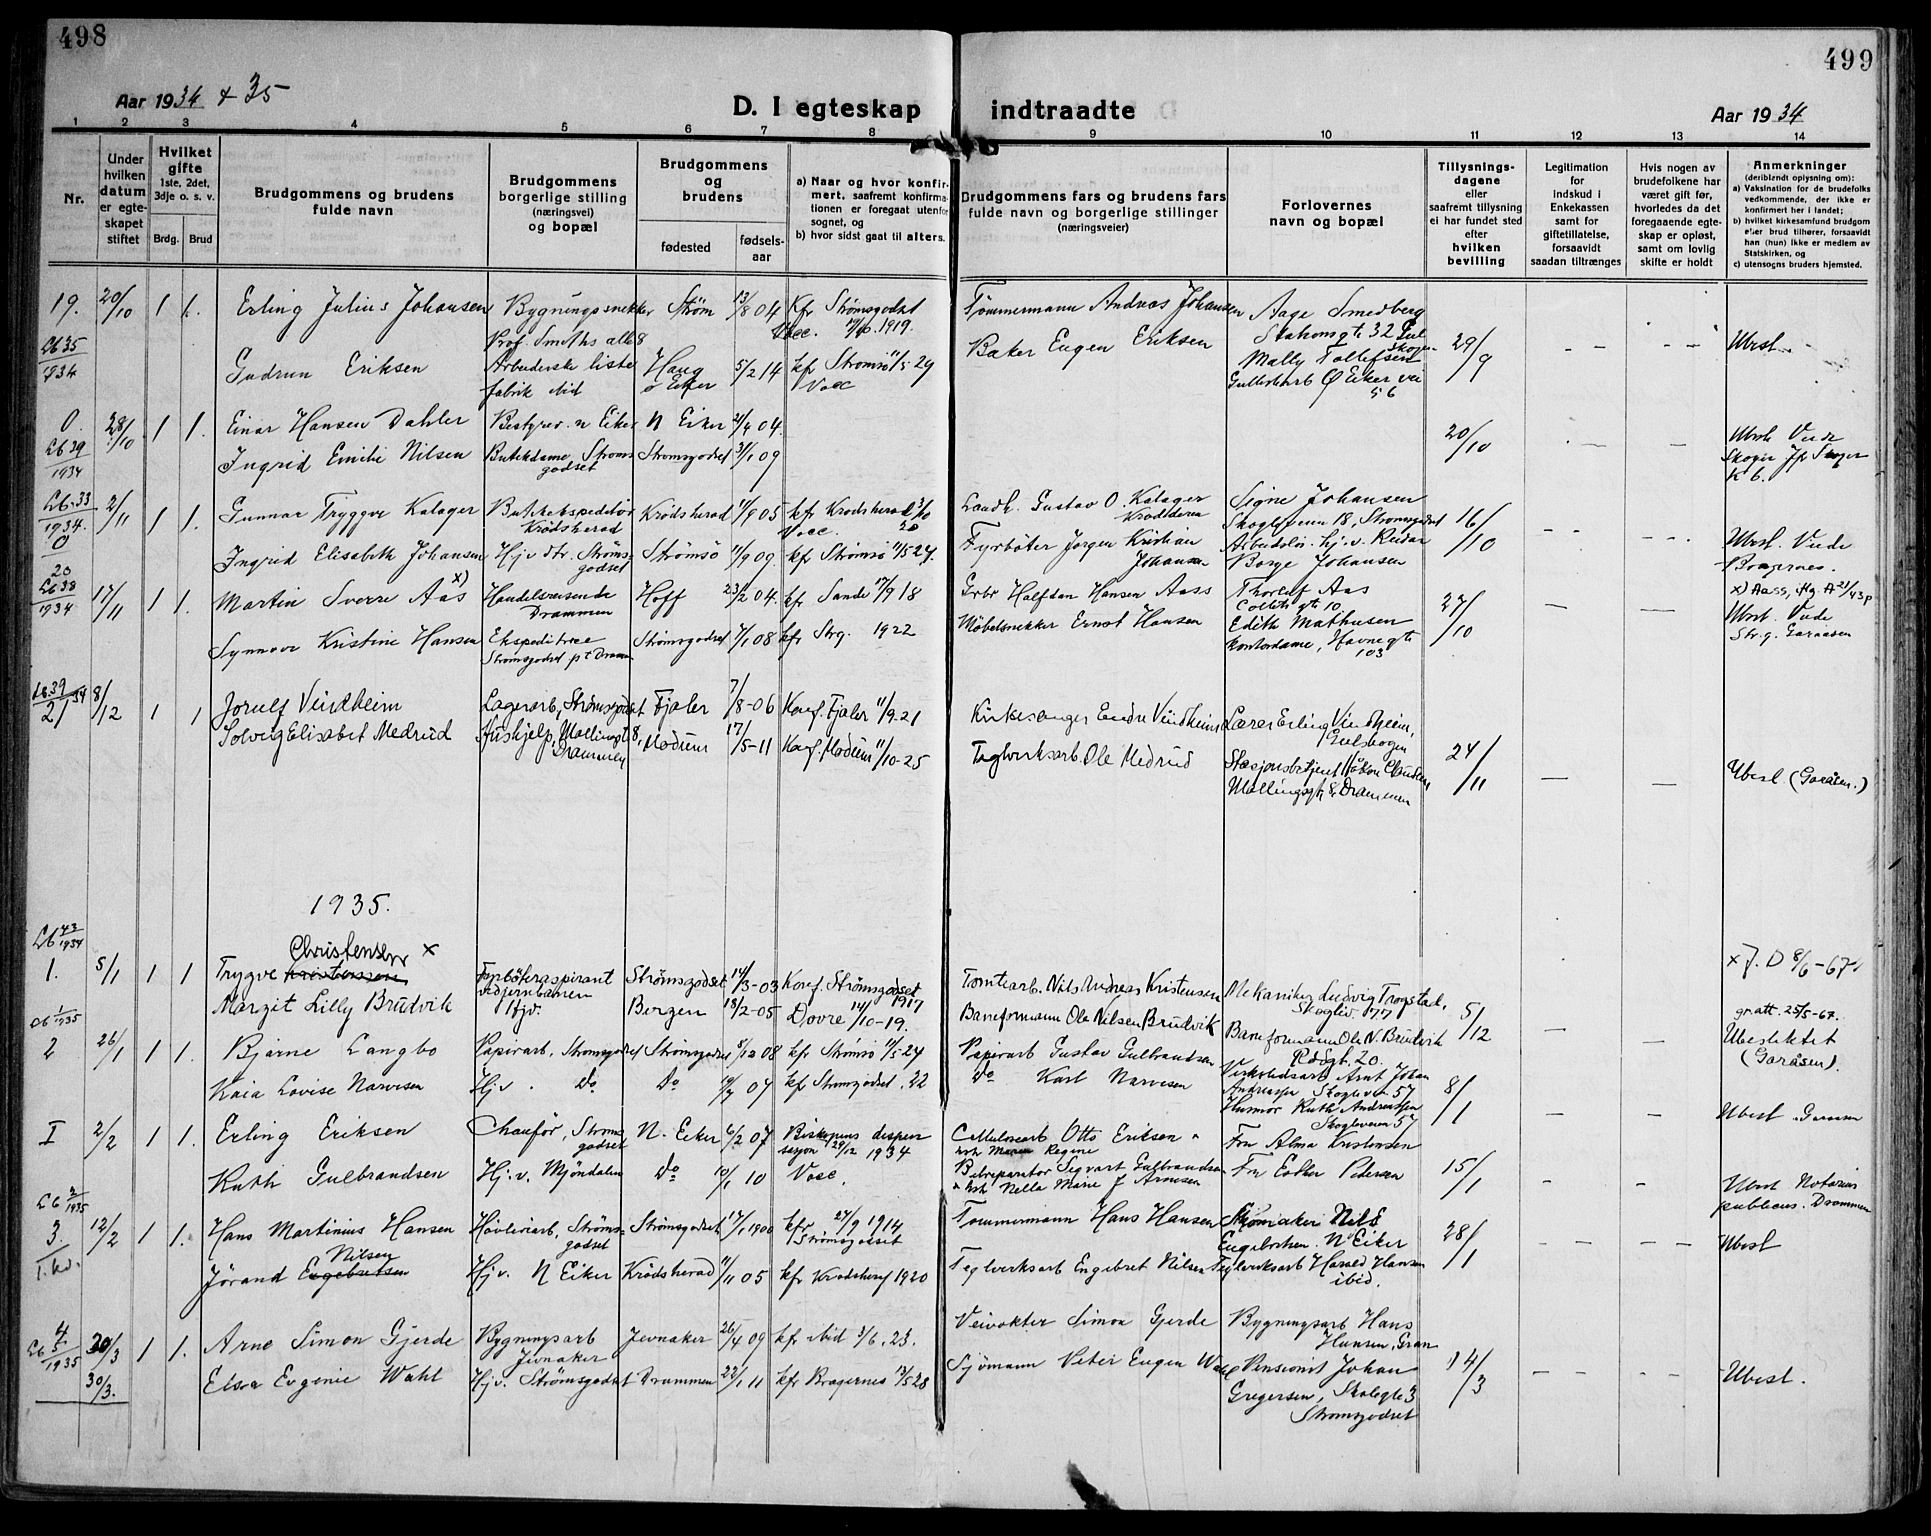 498
499
Aar 1934 & 35
D. I egteskap indtraadte
Aar 1934
1 2 3 4 5 6 7 8 9 10 11 12 13 14
Nr.
Under hvilken datum er egteskapet stiftet
Hvilket gifte 1ste, 2det, 3dje o. s. v.
Brdg. Brud
Brudgommens og brudens fulde navn
Brudgommens borgerlige stilling (næringsvei) og bopæl
Brudgommens og brudens
fødested
fødselsaar
a) Naar og hvor konfirmert, saafremt konfirmationen er foregaat utenfor sognet, og
b) hvor sidst gaat til alters.
Brudgommens fars og brudens fars fulde navn og borgerlige stillinger (næringsveier)
Forlovernes navn og bopæl
Tillysningsdagene eller saafremt tillysning ei har fundet sted efter hvilken bevilling
Legitimation for indskud i Enkekassen samt for giftetillatelse, forsaavidt saadan tiltrænges
Hvis nogen av brudefolkene har været gift før, hvorledes da det foregaaende egteskap er opløst, samt om lovlig skifte er holdt
Anmerkninger
(deriblendt oplysning om):
a) Vaksination for de brudefolks vedkommende, der ikke er konfirmert her i landet;
b) hvilket kirkesamfund brudgom eller brud tilhører, forsaavidt han (hun) ikke er medlem av Statskirken, og
c) utensogns bruders hjemsted.
19. 20/10 1 1. Erling Julius Johansen Bygningssnekker Strøm 13/8 04 Kfr Strømsgodset Tømmermann Andreas Johansen Aage Smedberg
Prof. Smiths alle 8 1919. Stationsgt. 32
Lb 35/1934 Gudrun Eriksen Arbeiderske liste Haug 5/2 14 kf Strømsø 11/5 29 Baker Eugen Eriksen Mally Tollefsen 29/9 - - - Ubesl.
fabrik Mid Ø Eiker Vacc Ø Eiker vei
56
0. 28/10 1 1. Einar Hansen Dahler Bestyrer. N Eiker N Eiker 2/4 04. 20/10 - - Ubesl. Viede
Lb 39/1934 Ingrid Emilie Nilsen Butikdame, Strømsgodset Strømsgodset 31/1 09 Skoger
K b.
Lb. 33/1934. 2/11 1 1. Gunnar Tryggve Kalager Butikekspeditør Krødsherad 11/9 05 kfr Krødsherad 3/10 20 Landh. Gustav O. Kalager Signe Johansen
Krødsherad Vacc. Krødderen Skogliveien 18, Strømsgodset 16/10 - -
0 Ingrid Elisabeth Johansen Hjv str. Strømsgodset Strømsø 11/9 09. kf Strømsø 11/5 24. Fyrbøter Jørgen Kristian Johansen Børge Johansen Ubesl. Viede
Bragernes.
20 Lb 38/1934 17/11 1 1. Martin Sverre Aas x) Handelsreisende Hoff 23/2 04. kfr Sande 17/9 18 Grbr Halfdan Hansen Aass Thorleif Aas 27/10 - - x) Aass,
Drammen Ubesl. Viede
Synnøve Kristine Hansen Ekspeditrice Strømsgodset 7/1 08 kfr Strg. 1922 Møbelsnekker Ernst Hansen Edith Mathiesen Str.g. Garaasen
Strømsgodset p t Drammen kontordame, Havnegt 103
Lb. 39/34 21 8/12 1 1 Jorulf Vindheim Lagerarb, Strømsgodset Fjaler 7/8-06 Konf. Fjaler 11/9.21 Kirkesanger Endre Vindheim Lærer Erling Vindheim,
Gulskogen
Solveig Elisabet Medrud Hushjelp, Møllingsgt 8, Drammen Modum 17/5-11 Konf. Modum 11/10-25 Teglverksarb. Ole Medrud Stasjonsbetjent Håkon Clausen, 24/11 - - Ubesl (Garåsen.)
Møllingsgt 8, Drammen
1935.
Lb 43/1934 1. 5/1 1 1 Trygve Kristensen Christensen x Fyrbøteraspirant Strømsgodset 14/3-03 Konf. Strømsgodset 1917 Tomtearb. Nils Andreas Kristensen Mekaniker Ludvig Trogstad, x J. D 8/6-67.
ved jernbanen Skogliv. 77
Margit Lilly Brudvik Hjv. Bergen 18/2-05 Dovre 14/10-19. Baneformann Ole Nilsen Brudvik Baneformann Ole N. Brudvik 5/12 - - gr. att. 25/5-67.
Ubeslektet
(Garåsen).
Lb 1/1935 2 26/1 1 1. Bjarne Langbo Papirarb, Strømsgodset Strømsgodset 8/12 08 kfr Strømsø 11/5 24 Papirarb Gustav Gulbrandsen Arnt Johan
Kaia Lovise Narvesen Hjv. Do Do 07 kf Strømsgodset. 22 Do Karl Narvesen Andreassen Skogliveien 57 8/1 - - Ubesl. Garaasen
Husmor Ruth Andreassen
Skogliveien 57
I 2/2 1 1. Erling Eriksen Chaufør, Strømsgodset N. Eiker 6/2 07 Biskopens dispensasjon 29/12 1934 Cellulosearb Otto Eriksen Fru Alma Kristensen
Maren Regine
Ruth Gulbrandsen Hj. v. Mjøndalen Do 10/1 10 Vacc. Sigvart Gulbrandsen Fru Esther Pedersen 15/1 - - Ubesl Notarius
Nella Marie publicus. Drammen
Lb 2/1935 3. 12/2 1 1. Hans Martinius Hansen Høvleriarb, Strømsgodset Strømsgodset 17/1 1900 kfr 27/9 1914 Strømsgodset Tømmermann Hans Hansen Skomaker Nils
Engebretsen. N Eiker 28/1 - - Ubesl
T. kv. Jørand Engebretsen Nilsen Hjv. N Eiker Krødsherad 11/11 05 kfr Krødsherad 1920 Teglverksarb Engebret Nilsen Teglverksarb Harald Hansen
ibid.
4 Lb 5/1935 30/3 1 1. Arne Simon Gjerde Bygningsarb Jevnaker 26/4 09 kf ibid 3/6. 23. Veivokter Simon Gjerde Bygningsarb Hans
Jevnaker Hansen, Gran
30/3. Elsa Evgenie Wahl Hjv. Strømsgodset Drammen 22/1 11 kfr Bragernes 13/5 28 Sjømann Peter Eugen Wahl Pensionist Johan 14/3 - - - Ubesl.
Gregersen, Skolegt. 3
Strømsgodset